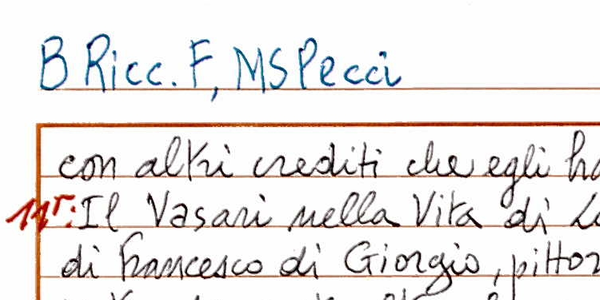 B Ricc. F, MS Pecci
con altri crediti che egli ha
11r: Il Vasari nella Vita di
di Francesco di Giorgio, pittor